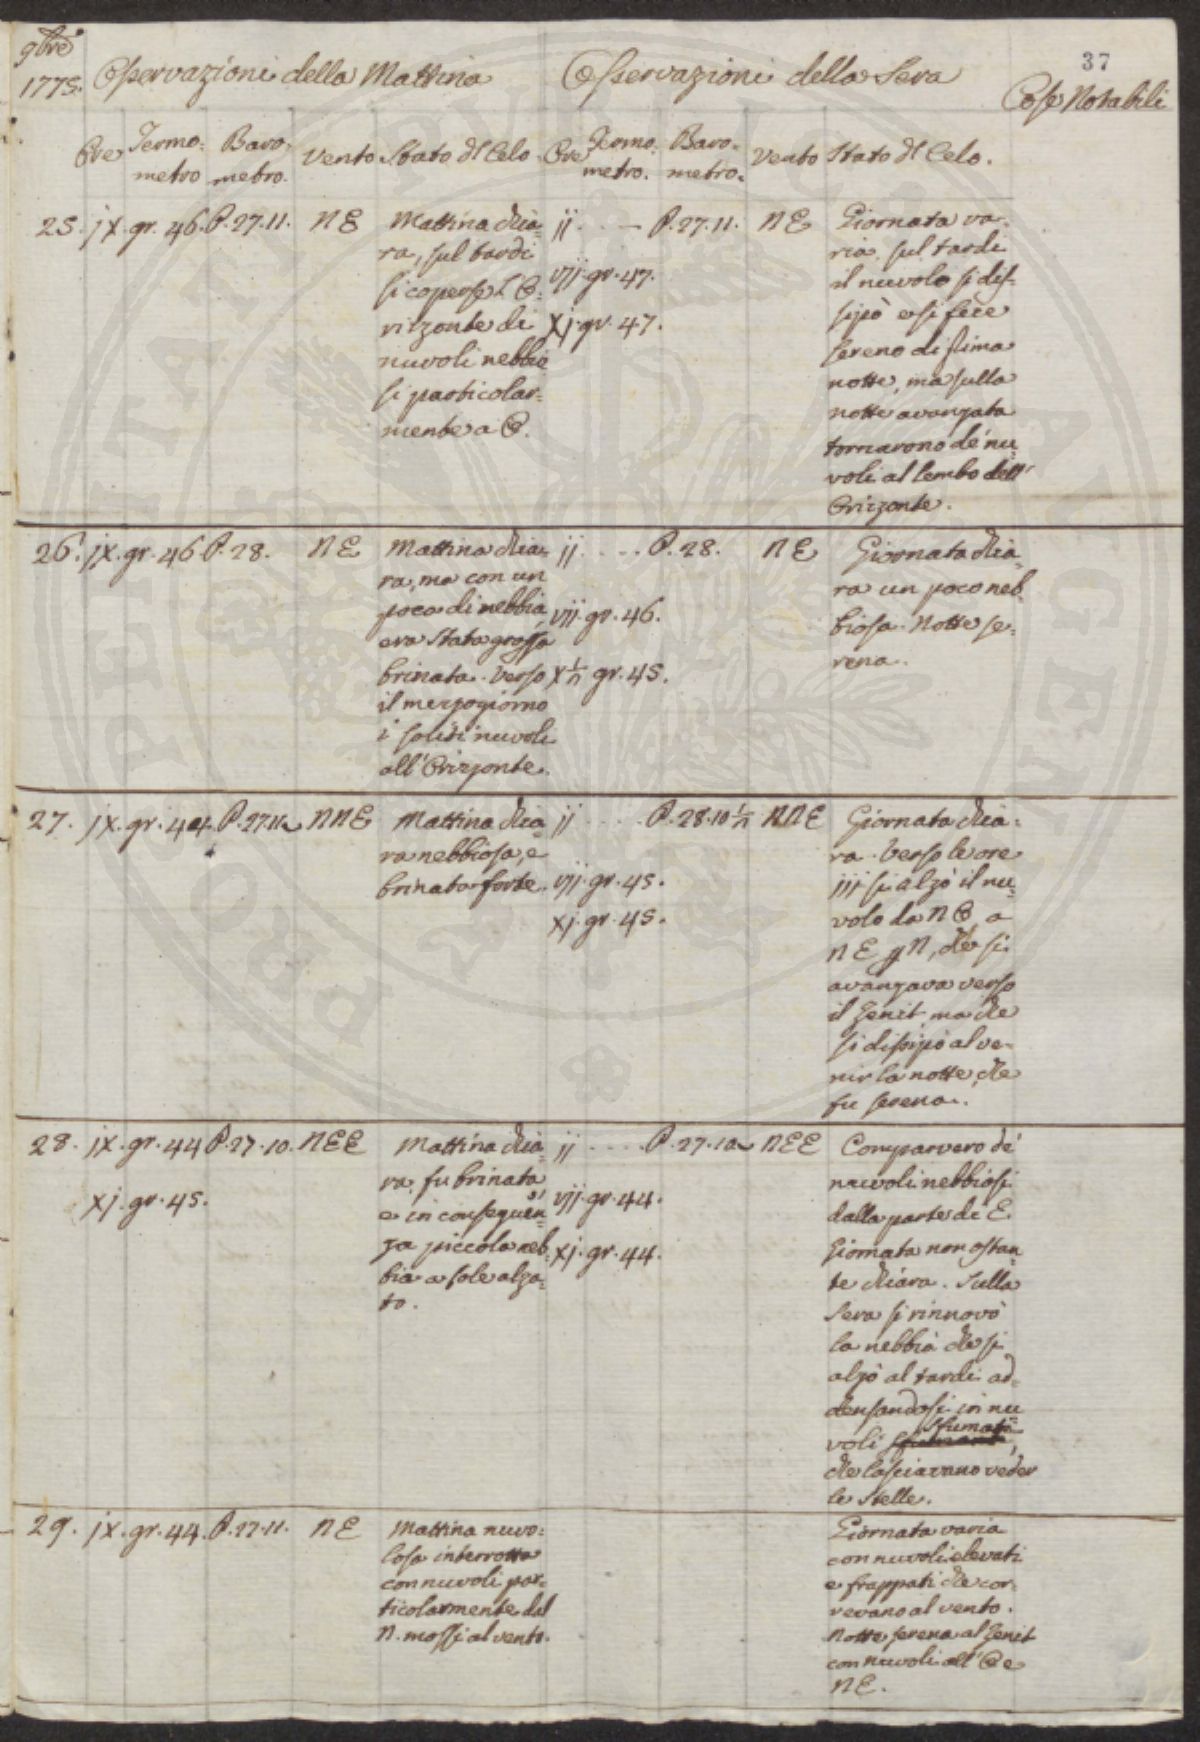 9bre
1775.
Osservazioni della Mattina
Osservazioni della Sera
37
Cose Notabili
Ore Termo: metro
Baro: metro.
Vento
Stato del Celo.
Ore Termo: metro.
Baro: metro.
Vento
Stato del Celo.
25. jx. gr. 46. P. 27. 11. NE
Mattina chia=
ra, sul tardi
si coperse l'O=
rizzonte di
nuvoli nebbio
si particolar=
mente a O.
ij . . . — P. 27. 11. NE
vij. gr. 47.
xj. gr. 47.
Giornata va=
ria, sul tardi
il nuvolo si dis=
sipò e si fece
sereno di prima
notte, ma sulla
notte avanzata
tornarono de' nu
voli al lembo dell'
Orizzonte.
26. jx. gr. 46 P. 28. NE
Mattina chia=
ra, ma con un
poca di nebbia,
era stata grossa
brinata. Verso
il mezzogiorno
i soliti nuvoli
all'Orizzonte.
ij . . . . P. 28. NE
vij. gr. 46.
x ½ gr. 45.
Giornata chia=
ra un poco neb=
biosa. Notte se=
rena.
27. jx. gr. 44. P. 27. 11 NNE
Mattina chia=
ra nebbiosa, e
brinata forte.
ij . . . . P. 28. 10 ½ NNE
vij. gr. 45.
xj. gr. 45.
Giornata chia=
ra. Verso le ore
iij si alzò il nu=
volo da NO, a
NE p N, che si
avanzava verso
il Zenit, ma che
si dissipò al ve=
nir la notte, che
fu serena.
28. jx. gr. 44 P. 27. 10. NEE
xj. gr. 45.
Mattina chia=
ra, fu brinata
e in conseguen=
za piccola neb=
bia a sole alza=
to.
ij . . . . P. 27. 10 NEE
vij. gr. 44.
xj. gr. 44.
Comparvero de'
nuvoli nebbiosi
dalla parte di E.
Giornata non ostan=
te chiara. Sulla
sera si rinnovò
la nebbia che si
alzò al tardi ad=
densandosi in nu=
voli sfumati,
che lasciavano veder
le stelle.
29. jx. gr. 44. P. 27. 11. NE
Mattina nuvo=
losa interrotta
con nuvoli par=
ticolarmente dal
N. mossi al vento.
Giornata varia
con nuvoli elevati
e frappati che cor=
revano al vento.
Notte serena al Zenit
con nuvoli all'O e
NE.